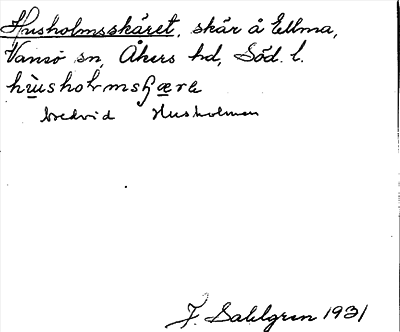 Husholmsskäret, skär å Ellma,
Vansö sn, Åkers hd, Söd. l.
bredvid Husholmen
F. Dahlgren 1931